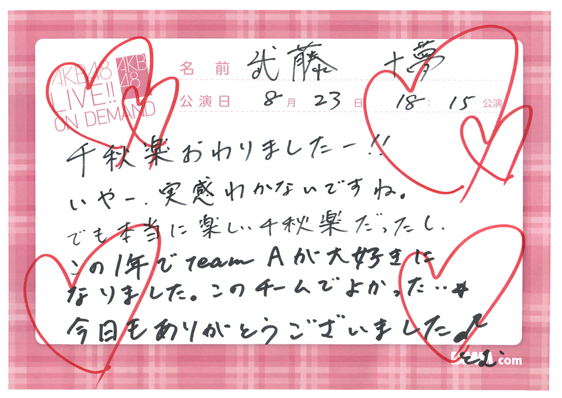 AKB48
LIVE!!
ON DEMAND
AKB
48
名前 武藤 十夢
公演日 8月 23日 18:15公演
千秋楽おわりましたー!!
いやー、実感わかないですね。
でも本当に楽しい千秋楽だったし、
この1年でteam Aが大好きに
なりました。このチームでよかった…★
今日もありがとうございました♪
とむ
.com